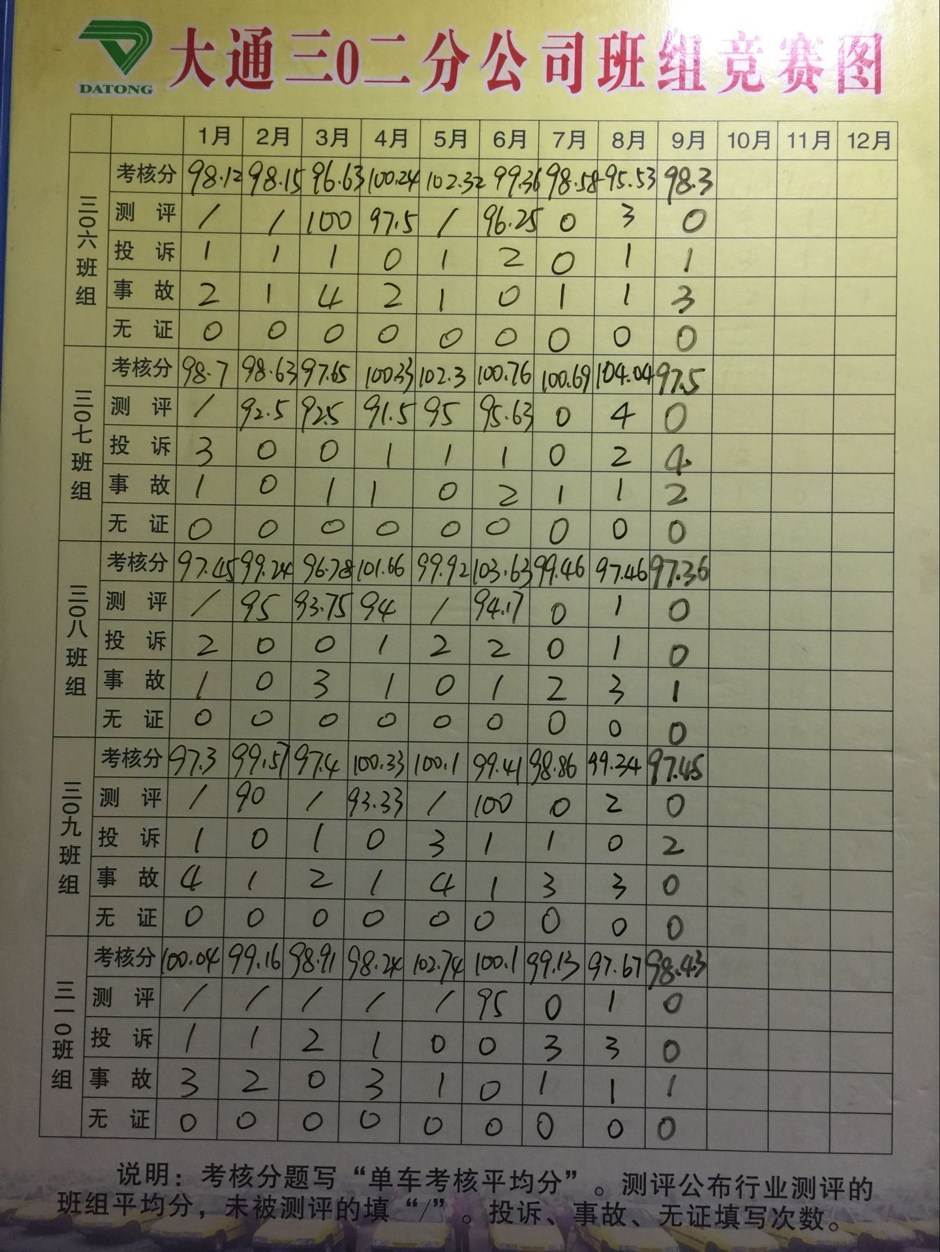 DATONG
大通三0二分公司班组竞赛图
1月 2月 3月 4月 5月 6月 7月 8月 9月 10月 11月 12月
三〇六班组
考核分 98.12 98.15 96.63 100.24 102.32 99.36 98.58 95.53 98.3
测评 / / 100 97.5 / 96.25 0 3 0
投诉 1 1 1 0 1 2 0 1 1
事故 2 1 4 2 1 0 1 1 3
无证 0 0 0 0 0 0 0 0 0
三〇七班组
考核分 98.7 98.63 97.65 100.33 102.3 100.76 100.69 104.04 97.5
测评 / 92.5 92.5 91.5 95 95.63 0 4 0
投诉 3 0 0 1 1 1 0 2 4
事故 1 0 1 1 0 2 1 1 2
无证 0 0 0 0 0 0 0 0 0
三〇八班组
考核分 97.45 99.24 96.78 101.66 99.92 103.63 99.46 97.46 97.36
测评 / 95 93.75 94 / 94.17 0 1 0
投诉 2 0 0 1 2 2 0 1 0
事故 1 0 3 1 0 1 2 3 1
无证 0 0 0 0 0 0 0 0 0
三〇九班组
考核分 97.3 99.57 97.4 100.33 100.1 99.41 98.86 99.34 97.45
测评 / 90 / 93.33 / 100 0 2 0
投诉 1 0 1 0 3 1 1 0 2
事故 4 1 2 1 4 1 3 3 0
无证 0 0 0 0 0 0 0 0 0
三一〇班组
考核分 100.04 99.16 98.91 98.24 102.74 100.1 99.13 97.67 98.43
测评 / / / / / 95 0 1 0
投诉 1 1 2 1 0 0 3 3 0
事故 3 2 0 3 1 0 1 1 1
无证 0 0 0 0 0 0 0 0 0
说明：考核分题写“单车考核平均分”。测评公布行业测评的
班组平均分，未被测评的填“/”。投诉、事故、无证填写次数。